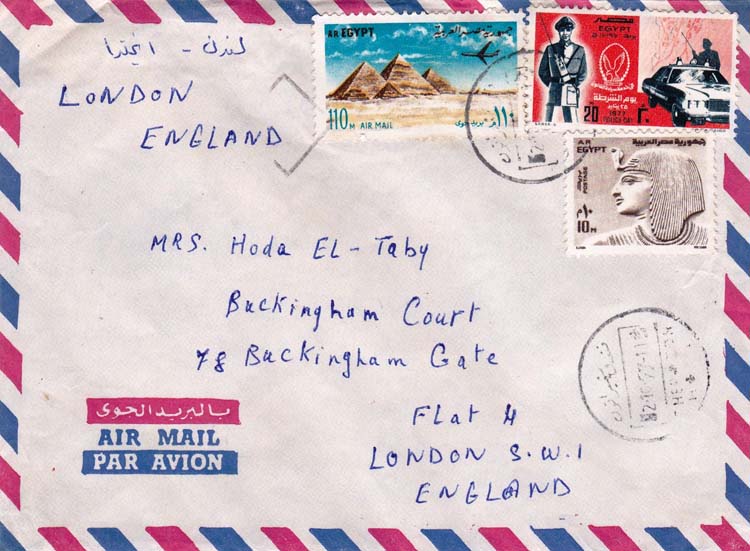 لندن - انجلترا
LONDON
ENGLAND
AR EGYPT جمهورية مصر العربية
110 M AIR MAIL بريد جوى م ١١٠
مصر
EGYPT
يوم الشرطة
٢٥ يناير
1977
POLICE DAY
20 ٢٠
جمهورية مصر العربية
AR
EGYPT
POSTAGE
بريد
م ١٠
10 M
MRS. Hoda EL-Taby
Buckingham Court
78 Buckingham Gate
Flat 4
LONDON S.W.1
ENGLAND
بالبريد الجوى
AIR MAIL
PAR AVION